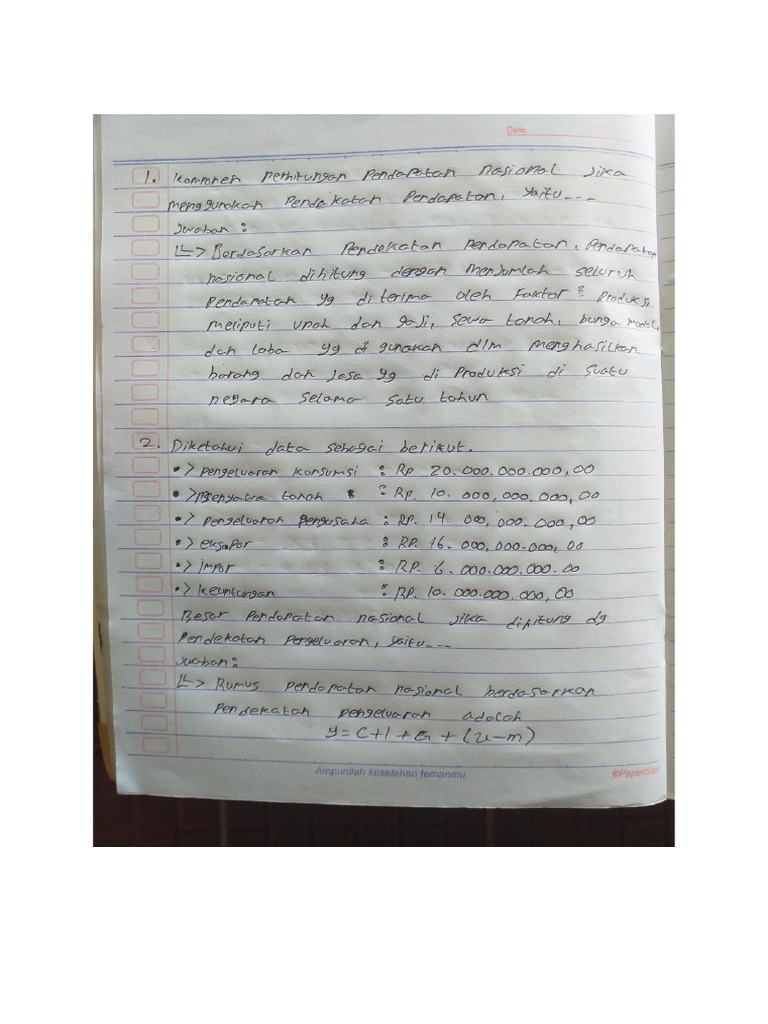 Date
1. Komponen perhitungan pendapatan nasional jika
menggunakan pendekatan pendapatan, yaitu....
Jwaban :
↳> Berdasarkan pendekatan pendapatan, pendapatan
nasional dihitung dengan menjumlah seluruh
pendapatan yg di terima oleh faktor² produksi
meliputi upah dan gaji, sewa tanah, bunga modal,
dan laba yg di gunakan dlm menghasilkan
barang dan jasa yg di produksi di suatu
negara selama satu tahun
2. Diketahui data sebagai berikut.
•> pengeluaran konsumsi : Rp 20.000.000.000,00
•> tanah : Rp. 10.000,000,000,00
•> pengeluaran pengusaha : Rp. 14.000,000.000,00
•> ekspor : Rp. 16.000.000.000,00
•> impor : Rp. 6.000.000.000.00
•> keuntungan : Rp. 10.000.000.000,00
Besar pendapatan nasional jika dihitung dg
pendekatan pengeluaran, yaitu....
Jwaban :
↳> Rumus pendapatan nasional berdasarkan
pendekatan pengeluaran adalah
y = C + I + G + (x - m)
Ampunilah kesalahan temanmu
PaperStar